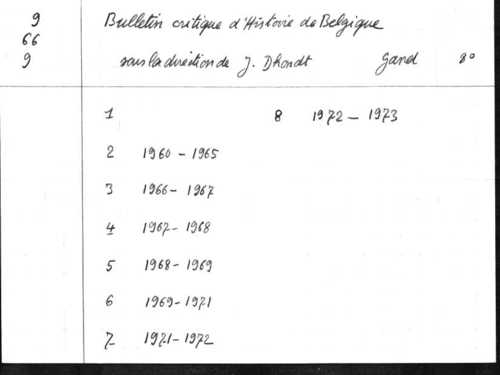 9 Bulletin critique d'Histoire de Belgique
66
9 sous la direction de J. Dhondt Gand 8°
1 8 1972 - 1973
2 1960 - 1965
3 1966 - 1967
4 1967 - 1968
5 1968 - 1969
6 1969 - 1971
7 1971 - 1972